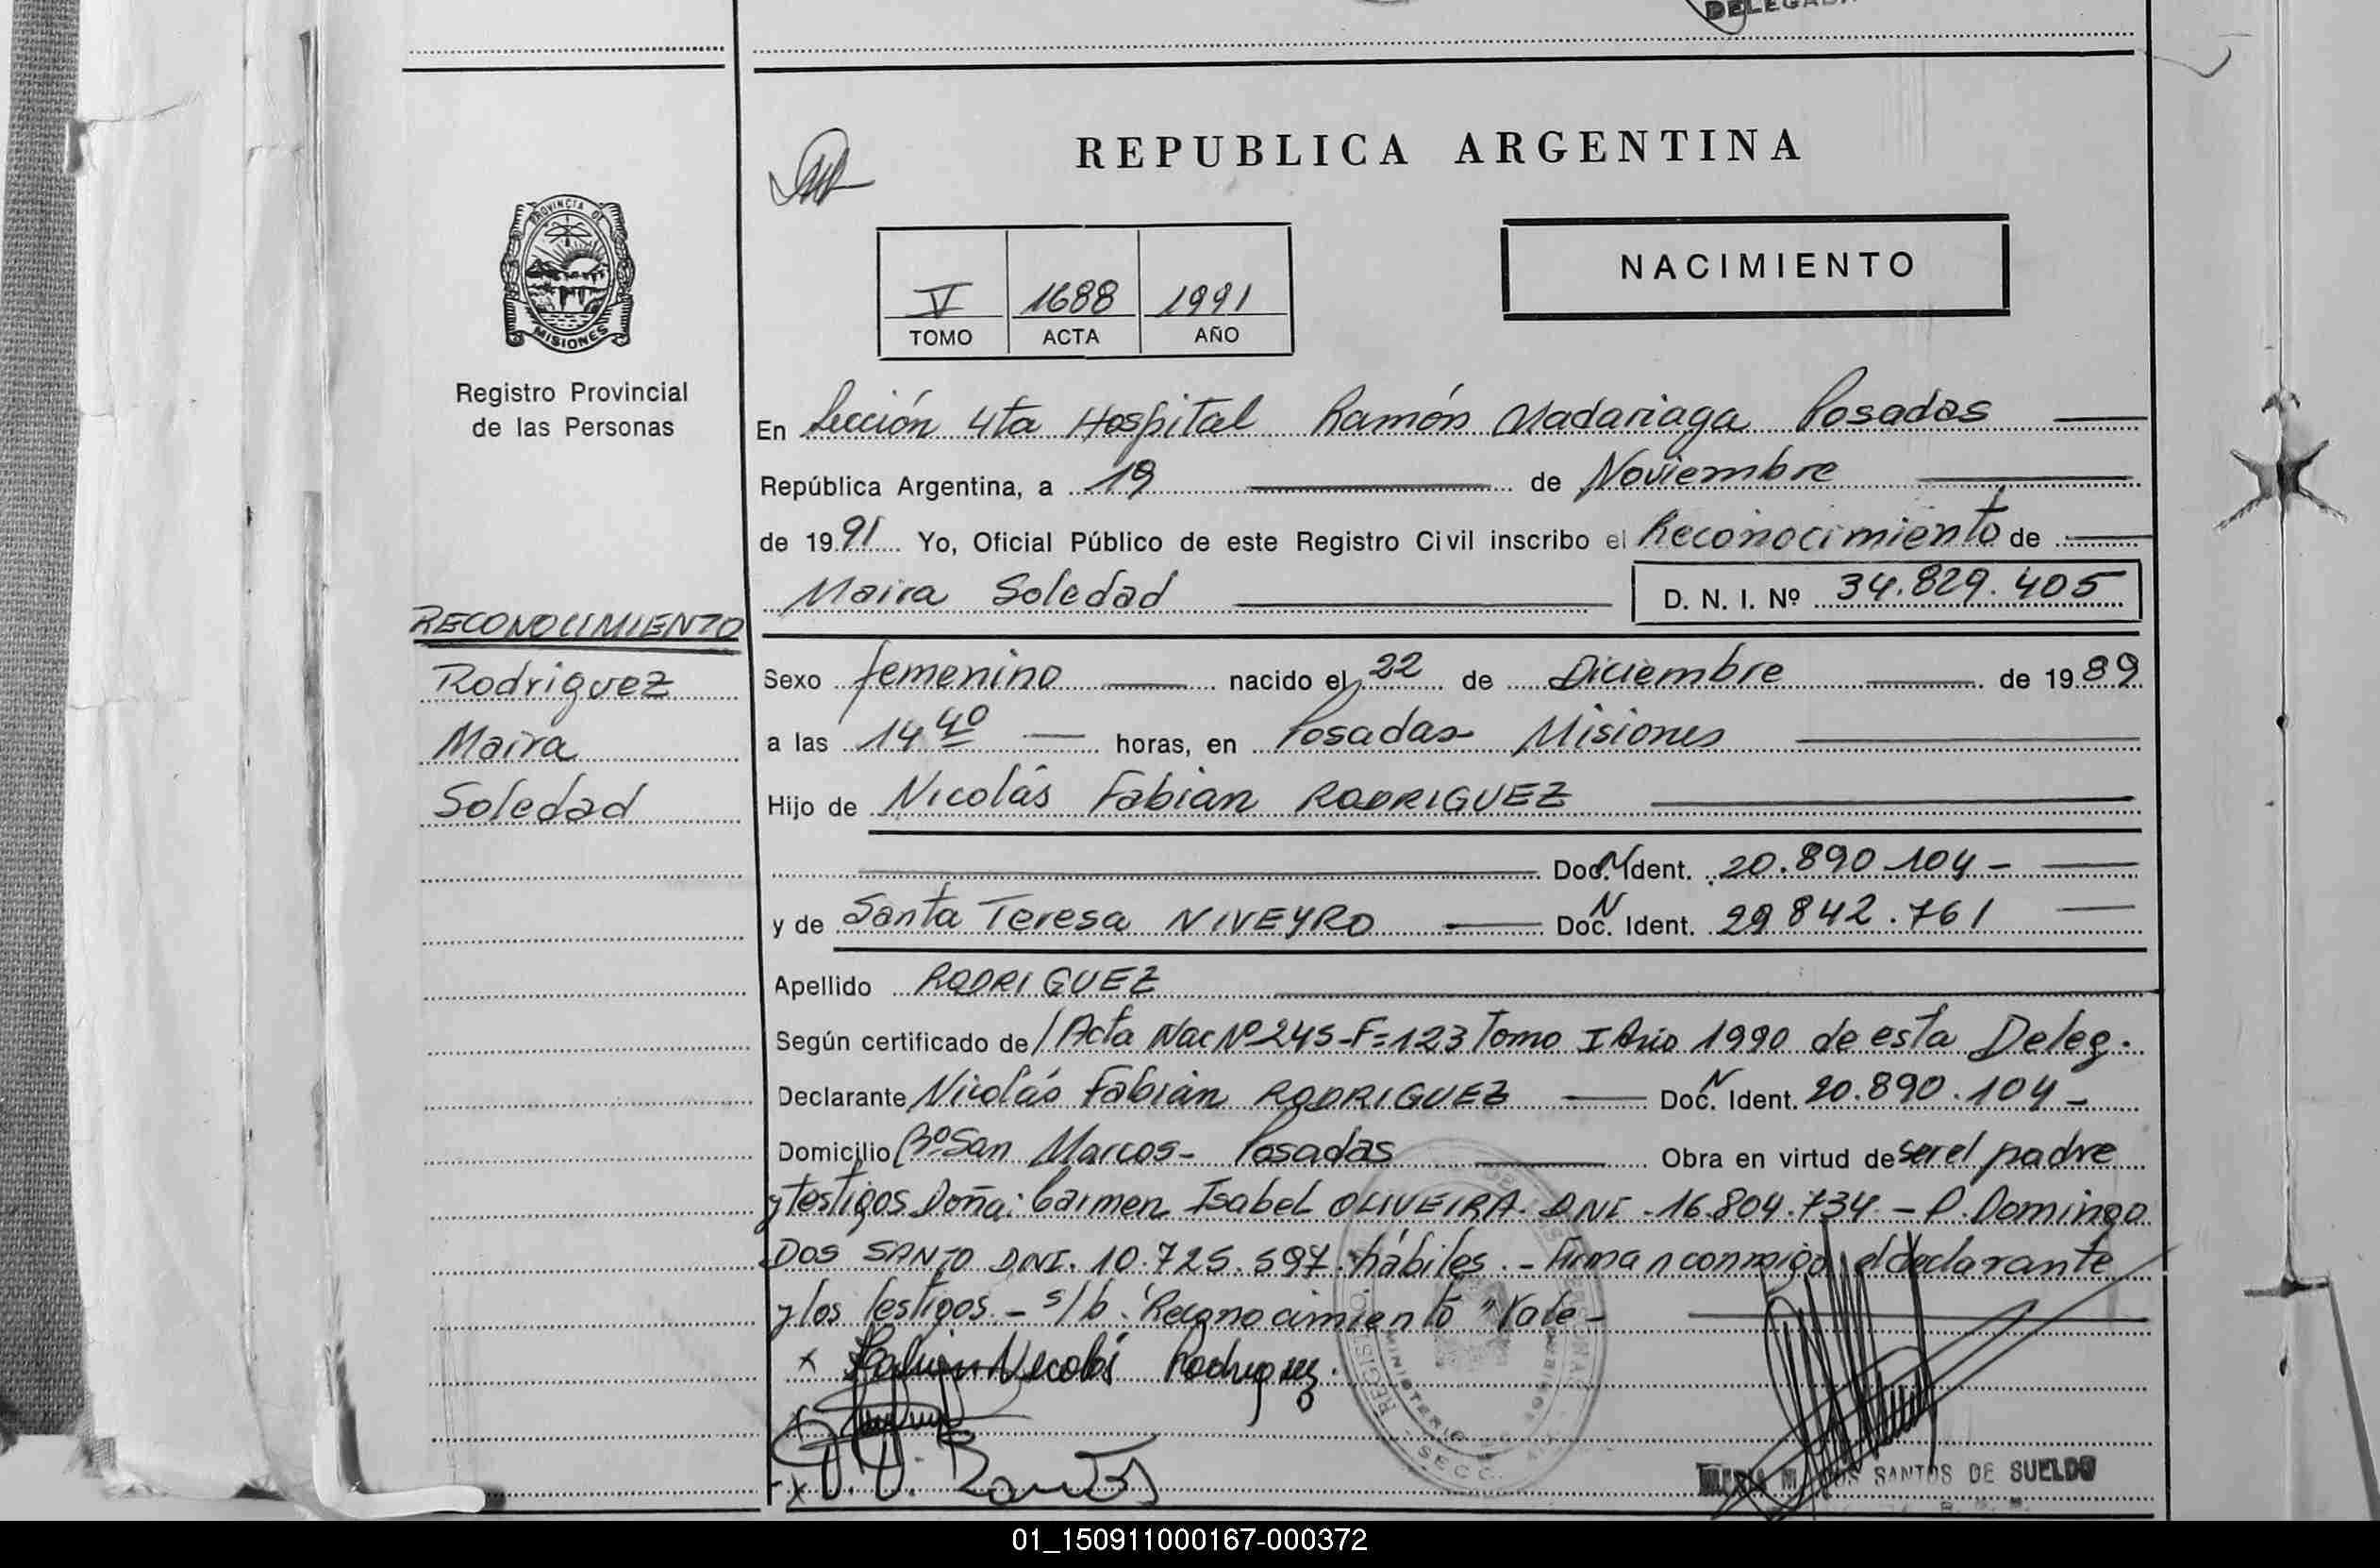 DELEGADA
REPUBLICA ARGENTINA
PROVINCIA DE
MISIONES
NACIMIENTO
V 1688 1991
TOMO ACTA AÑO
Registro Provincial
de las Personas
En Sección 4ta Hospital Ramón Madariaga Posadas
República Argentina, a 19 de Noviembre
de 1991 Yo, Oficial Público de este Registro Civil inscribo el Reconocimiento de
Maira Soledad D. N. I. Nº 34.829.405
RECONOCIMIENTO
Rodriguez
Maira
Soledad
Sexo femenino nacido el 22 de Diciembre de 1989
a las 14 40 horas, en Posadas Misiones
Hijo de Nicolás Fabián RODRIGUEZ
Doc. N Ident. 20.890.104-
y de Santa Teresa NIVEYRO Doc. N Ident. 29 842.761
Apellido RODRIGUEZ
Según certificado de / Acta Nac Nº 245-F=123 Tomo I Año 1990 de esta Deleg.
Declarante Nicolás Fabián RODRIGUEZ Doc. N Ident. 20.890.104-
Domicilio Bº San Marcos- Posadas Obra en virtud de ser el padre
y testigos Doña: Carmen Isabel OLIVEIRA. DNI - 16.804.734 - D. Domingo
DOS SANTO DNI. 10.725.597. hábiles. - Firman conmigo el declarante
y los testigos. - s/b. "Reconocimiento" Vale-
x Fabian Necolas Rodriguez.
x
x D. D. Santos
SANTOS DE SUELDO
01_150911000167-000372